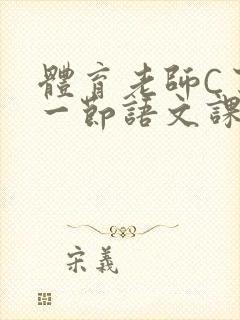 體育老師C了
一節語文課
宋義